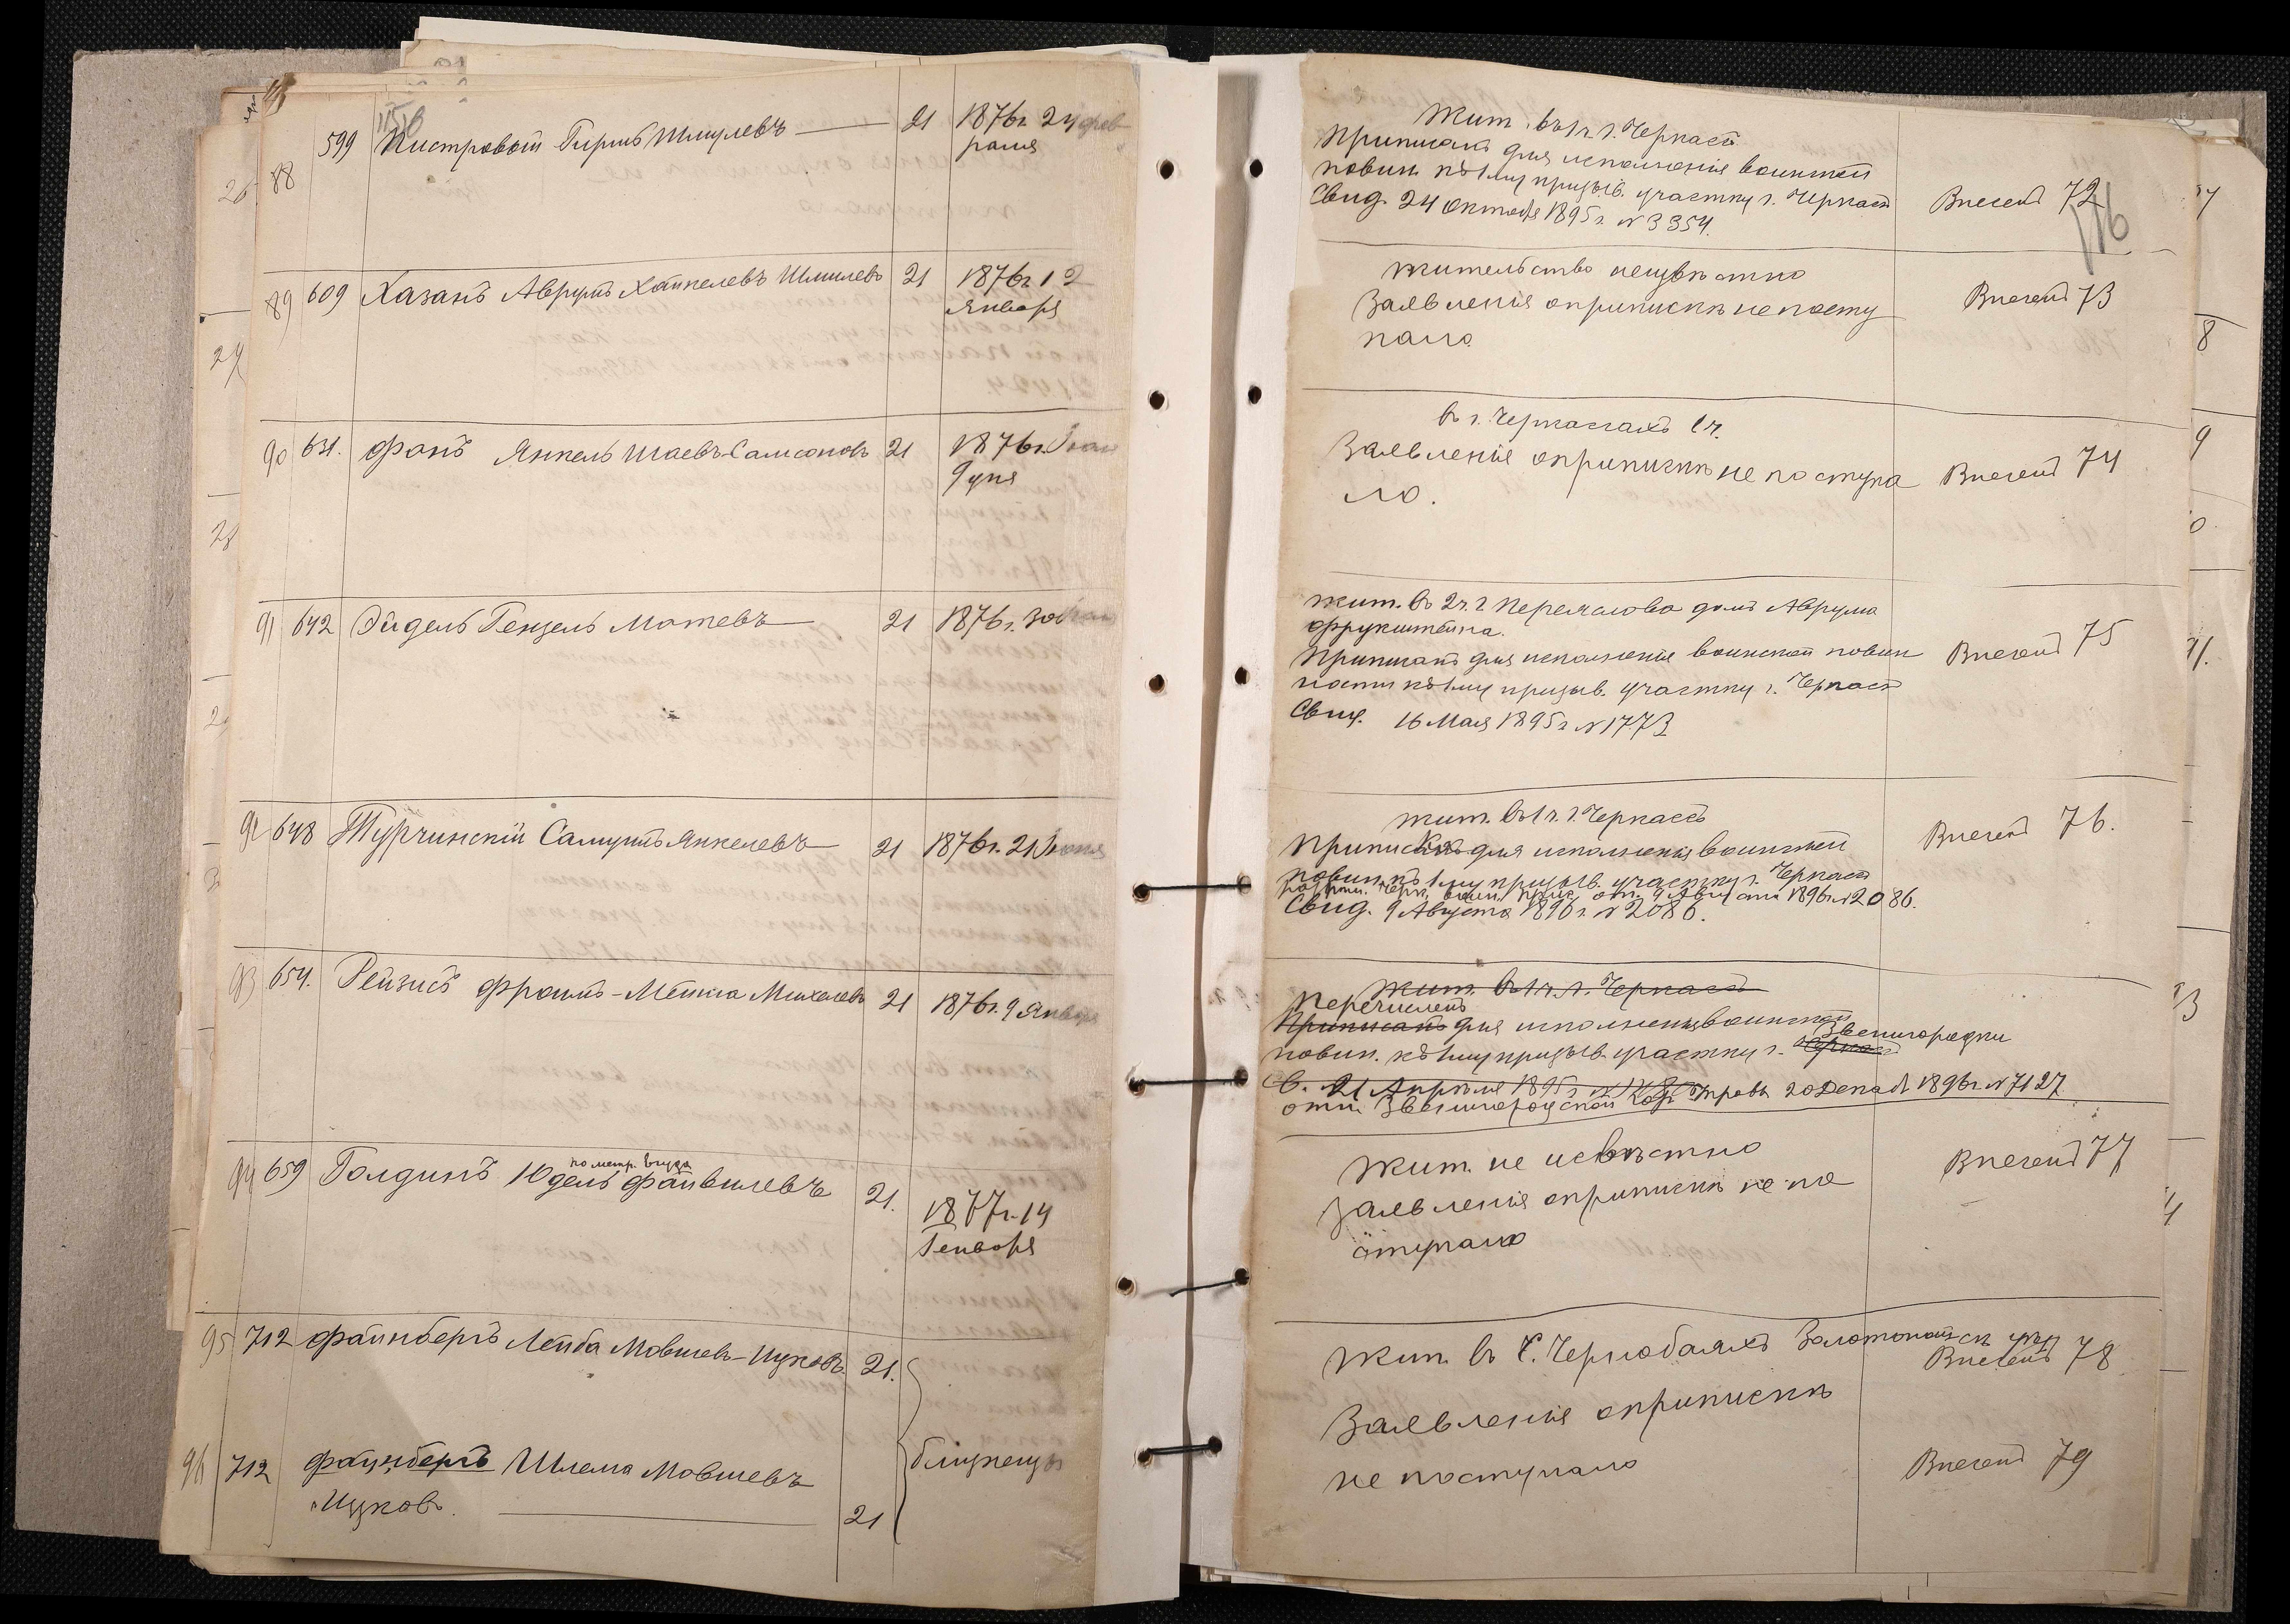 88 599 Пистровый Гершъ Шмулевъ 21 1876г. 24 фев
раля
89 609 Хазанъ Аврумъ Хаикелевъ Шмилевъ 21 1876г. 12
Января
90 631. Фанъ Янкель Шаевъ-Самсоновъ 21 1876г.
91 642 Эйдель Гензель Мотевъ 21 1876г. 30
92 648 Турчинскій Самуилъ Янкелевъ 21 1876г. 21
93 654. Рейзисъ Фроимъ-Мешка Михелевъ 21 1876г. 9 Января
по метр. Iуда
94 659 Голдинъ Юдель Файвилевъ 21. 1877г. 14
Генваря
95 712 Файнбергъ Лейба Мовшевъ-Ицковъ 21.
96 712 Файнбергъ Шлема Мовшевъ
Ицковъ. 21
близнецы
Жит. въ 1 ч. г. Черкасъ
Приписанъ для исполненія воинской
повин. къ 1му призыв. участку г. Черкасъ
Свид. 24 Октября 1895 г. № 3354.
Внесенъ 72
116
Жительство неизвѣстно
Заявленія о припискѣ не посту
пало
Внесенъ 73
въ г. Черкассахъ 1 ч.
Заявленія о припискѣ не поступа
ло.
Внесенъ 74
Жит. въ 2 ч. г. Переяслова домъ Аврума
Фрукштейна.
Приписанъ для исполненія воинской повин
ности къ 1му призыв. участку г. Черкасъ
Свид. 16 Мая 1895 г. № 1773
Внесенъ 75
жит. въ 1 ч. г. Черкассъ
Приписка для исполненія воинской
повин. къ 1му призыв. участку г. Черкасъ
Черк. воин. прис. отъ 9 Августа 1896г. № 2086.
Свид. 9 Августа 1896 г. № 2086.
Внесенъ 76.
Жит. въ 1 ч. г. Черкасъ
Перечисленъ
Приписанъ для исполненія воинской
Звенигородки
повин. къ 1му призыв. участку г. Черкасъ
С. 21 Апрѣля 1895 г. 20 Декаб. 1896г. № 7127
отн. Звенигородской
Жит. не исвѣстно
Заявленія о припискѣ не по
ступало
Внесенъ 77
Жит. въ С. Чернобаяхъ Золотонош. ск. уѣзд
Внесенъ 78
Заявленія о припискѣ
не поступало
Внесенъ 79